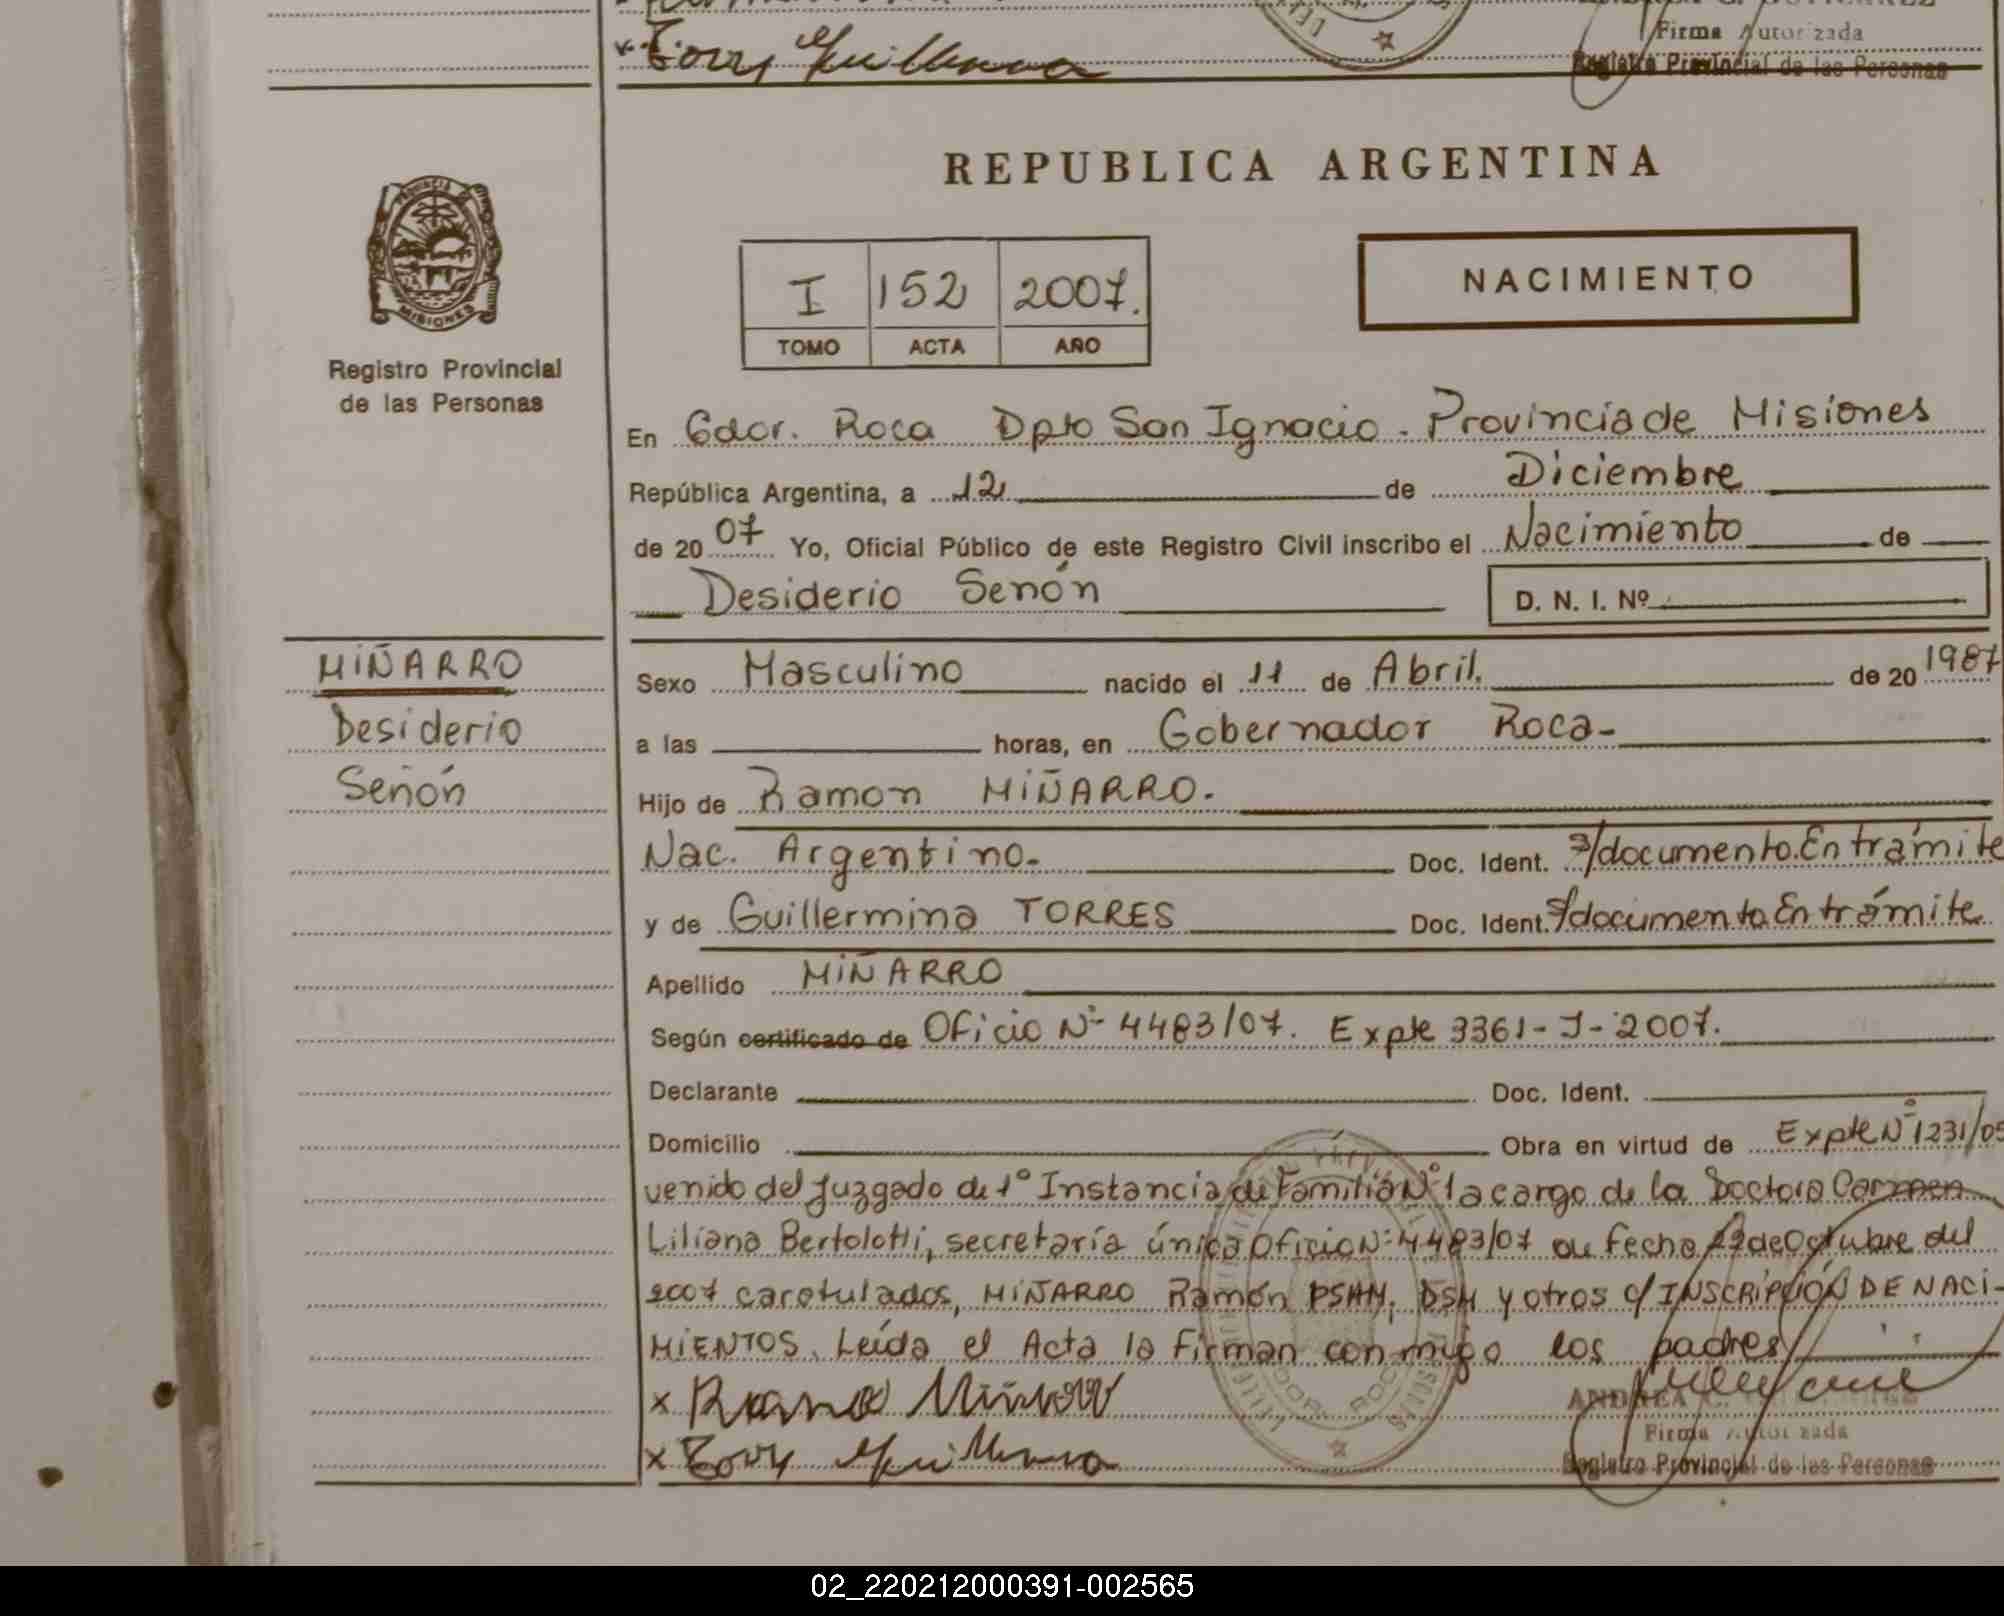 Torres Guillermina
Firma Autorizada
Registro Provincial de las Personas
REPUBLICA ARGENTINA
PROVINCIA DE
MISIONES
Registro Provincial
de las Personas
I 152 2007.
TOMO ACTA AÑO
NACIMIENTO
En Gdor. Roca Dpto San Ignacio. Provincia de Misiones
República Argentina, a 12 de Diciembre
de 20 07 Yo, Oficial Público de este Registro Civil inscribo el Nacimiento de
Desiderio Senón
D. N. I. Nº
MIÑARRO
Desiderio
Senón
Sexo Masculino nacido el 11 de Abril. de 20 1987
a las horas, en Gobernador Roca-
Hijo de Ramon MIÑARRO.
Nac. Argentino. Doc. Ident. s/documento. En trámite
y de Guillermina TORRES Doc. Ident. s/documento En trámite
Apellido MIÑARRO
Según certificado de Oficio Nº 4483/07. Expte 3361-J-2007.
Declarante Doc. Ident.
Domicilio Obra en virtud de Expte Nº 1231/05
venido del Juzgado de 1º Instancia de Familia Nº 1 a cargo de la Doctora Carmen
Liliana Bertolotti, secretaría única Oficio Nº 4483/07 de fecha de Octubre del
2007 caratulados, MIÑARRO Ramón PSHM, DSM y otros c/ INSCRIPCIÓN DE NACI-
MIENTOS. Leída el Acta la firman conmigo los padres
x Ramon Miñarro
x Torres Guillermina
ANDREA C.
Firma Autorizada
Registro Provincial de las Personas
02_220212000391-002565